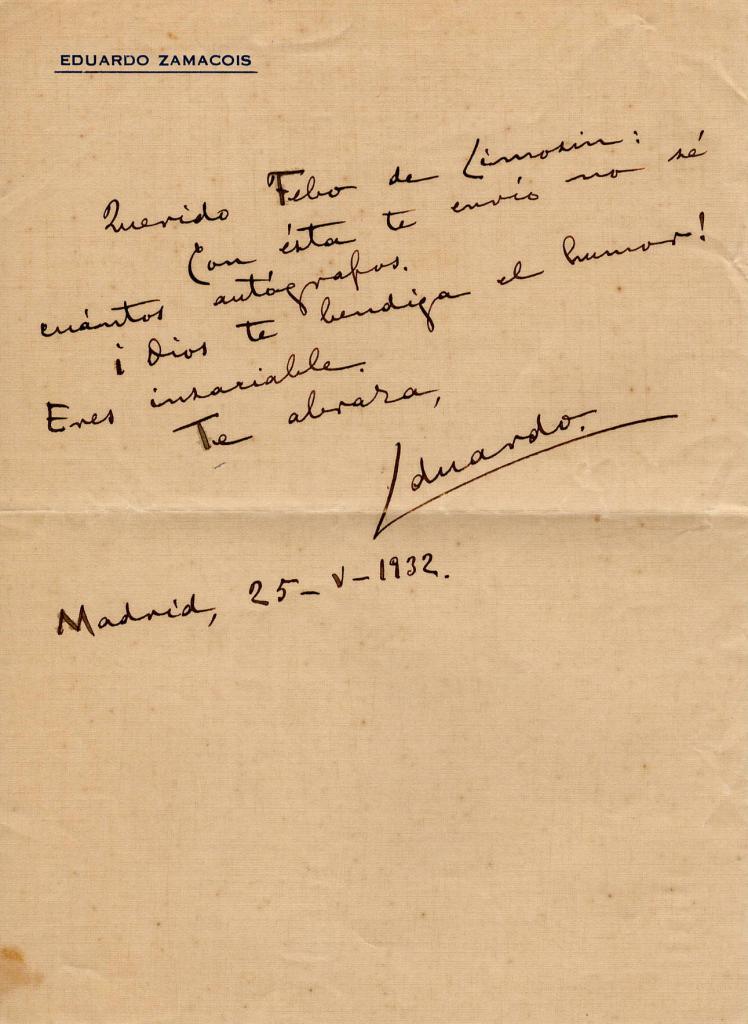 EDUARDO ZAMACOIS
Querido Febo de Limosin:
Con ésta te envío no sé
cuántos autógrafos.
¡Dios te bendiga el humor!
Eres insaciable.
Te abraza,
Eduardo.
Madrid, 25-V-1932.